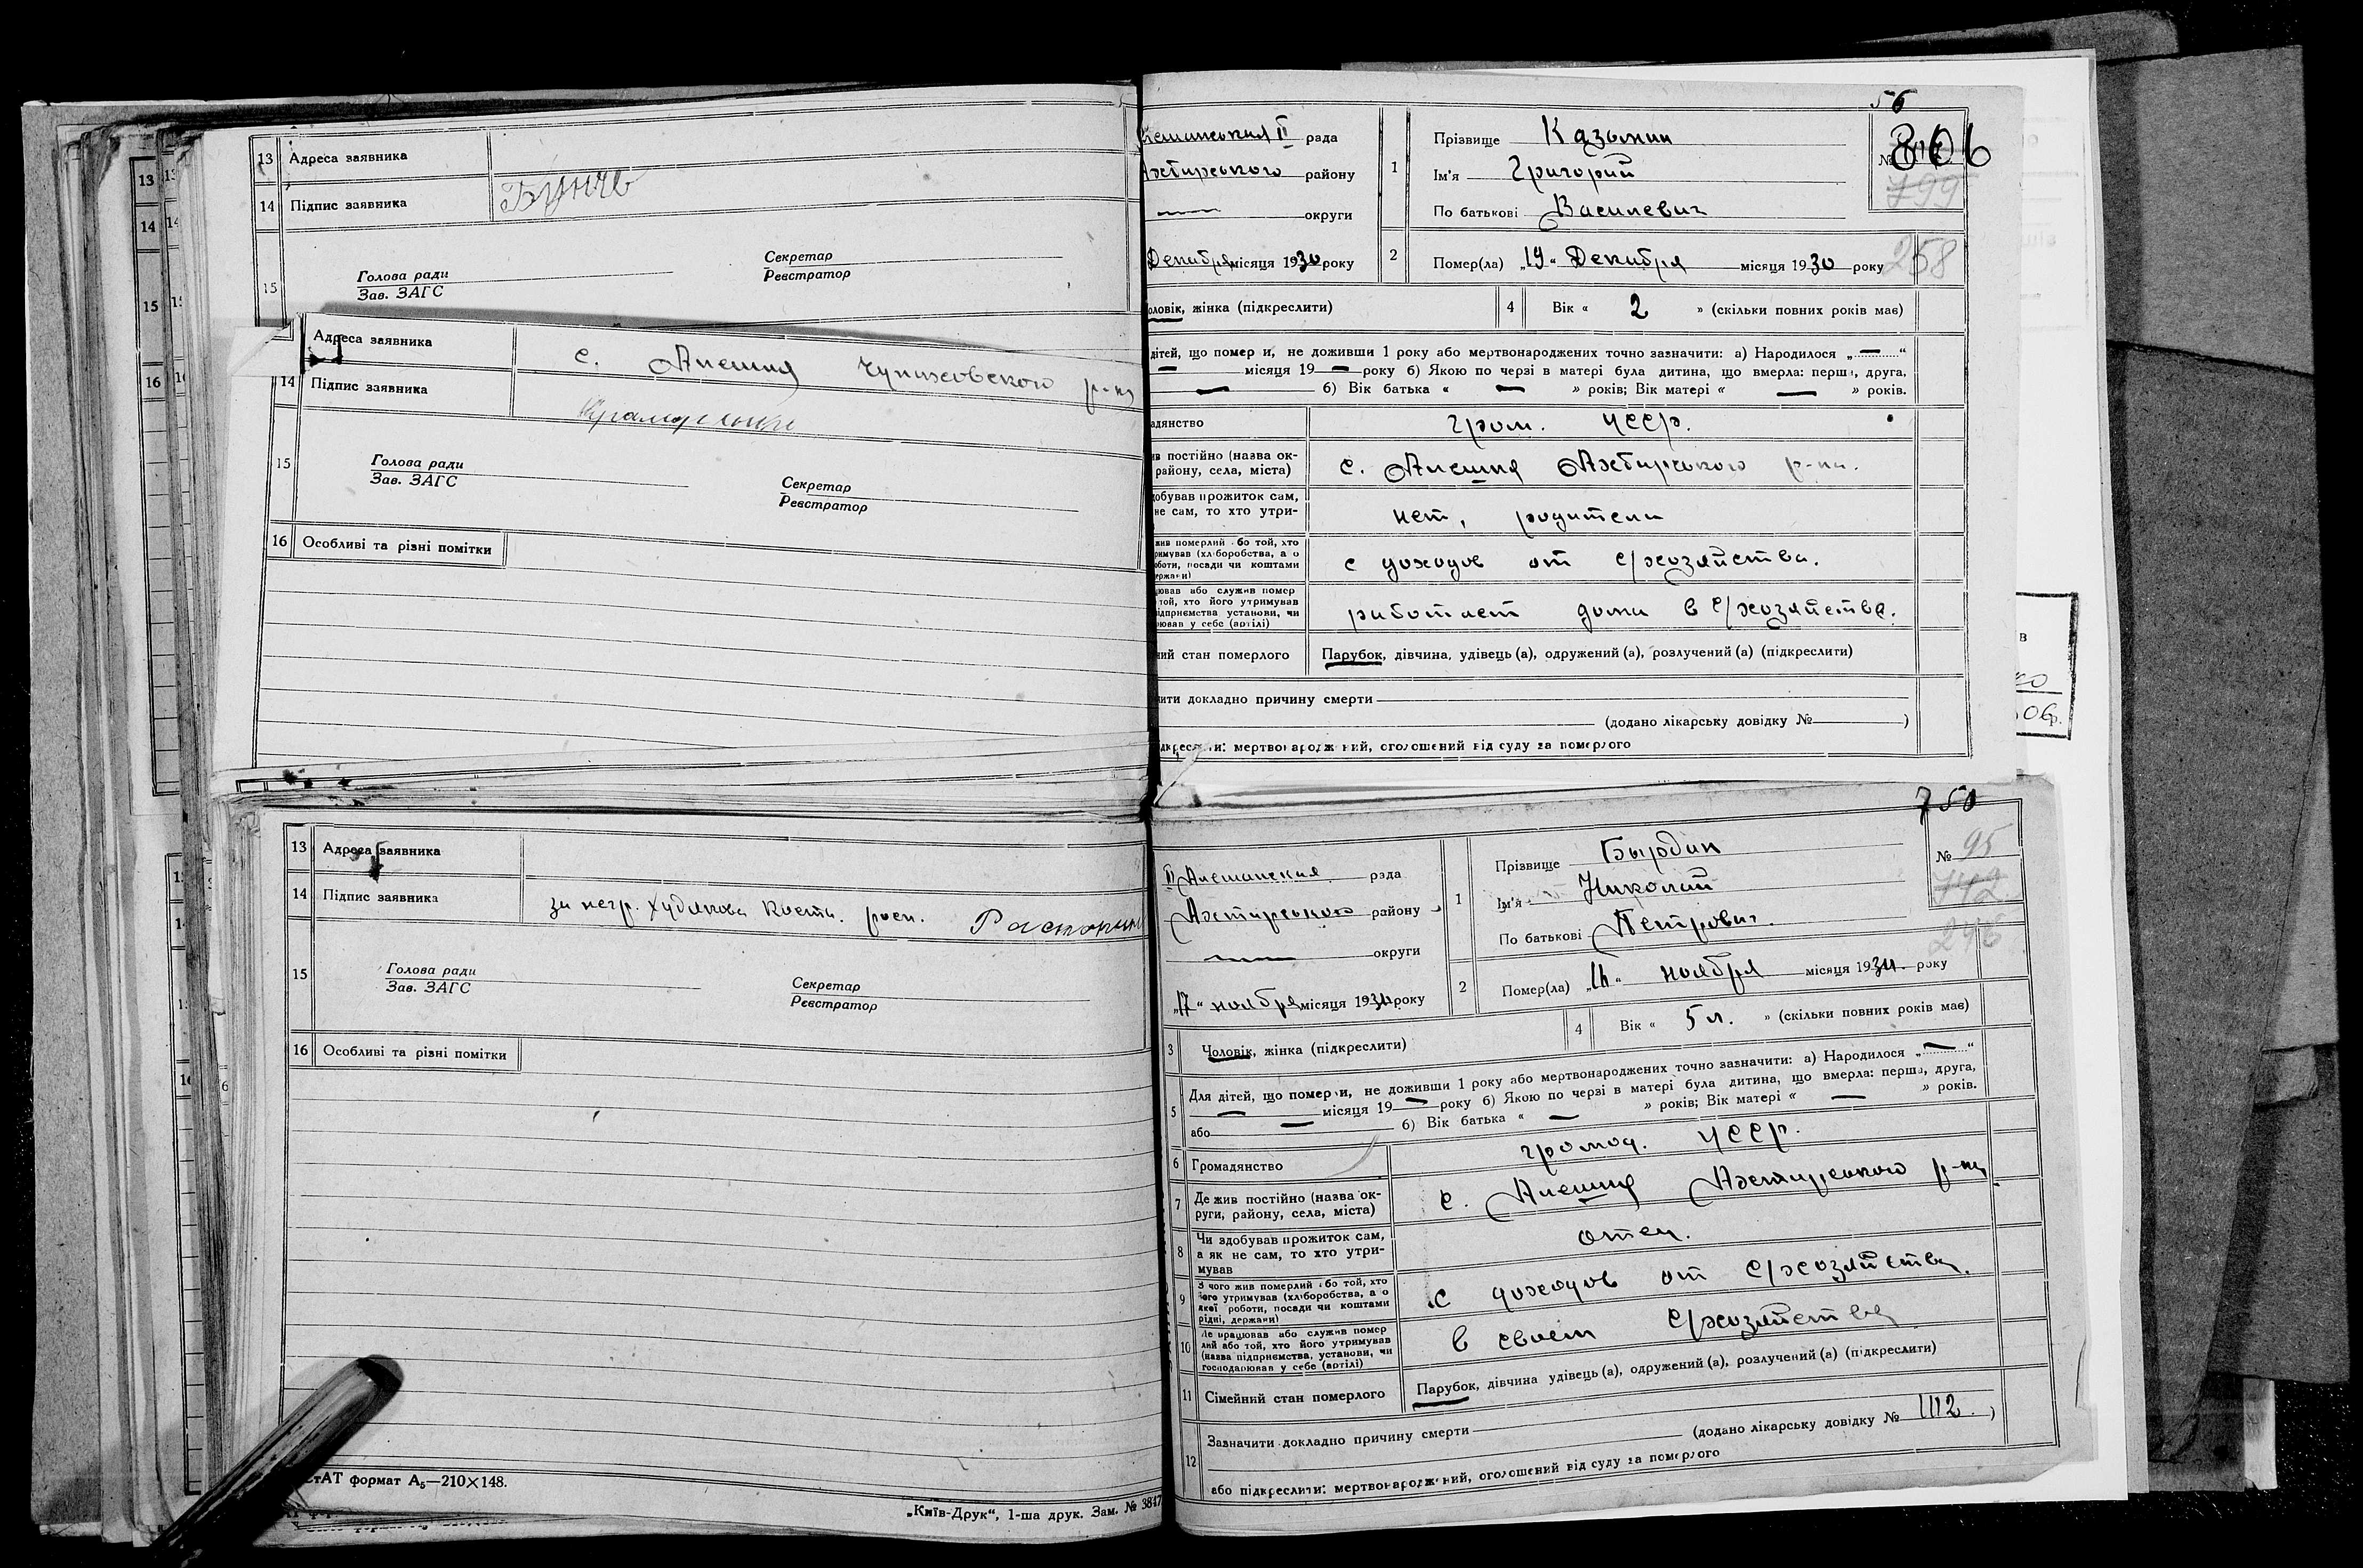 13 Адреса заявника
14 Підпис заявника
15 Голова ради
Зав. ЗАГС
Секретар
Реєстратор
Адреса заявника с. Алешня Чупаховского р-на
14 Підпис заявника
15 Голова ради
Зав. ЗАГС
Секретар
Реєстратор
16 Особливі та різні помітки
13 Адреса заявника
14 Підпис заявника за негр. Худякова Конст. росп.
15 Голова ради
Зав. ЗАГС
Секретар
Реєстратор
16 Особливі та різні помітки
стАТ формат А5—210×148.
„Київ-Друк“, 1-ша друк. Зам. № 3847
56
806
799
258
II рада
Ахтирського району
округи
Декабря місяця 1930 року
1 Прізвище Казьмин
Ім'я Григорий
По батькові Василевич
2 Помер(ла) „19“ Декабря місяця 1930 року
оловік, жінка (підкреслити)
4 Вік « 2 » (скільки повних років має)
дітей, що померли, не доживши 1 року або мертвонароджених точно зазначити: а) Народилося „—“
— місяця 19— року б) Якою по черзі в матері була дитина, що вмерла: перша, друга,
— б) Вік батька « — » років; Вік матері « — » років.
адянство гром. УССР.
ив постійно (назва ок-
району, села, міста) с. Алешня Ахтирського р-на.
добував прожиток сам,
не сам, то хто утри- нет, родители
жив померлий або той, хто
римував (хліборобства, а о
оботи, посади чи коштами
ержави) с доходов от с/хозяйства.
ював або служив помер
той, хто його утримував
ідприємства установи, чи
ював у себе (артілі) работает дома в с/хозяйстве.
ний стан померлого Парубок, дівчина, удівець(а), одружений(а), розлучений(а) (підкреслити)
чити докладно причину смерти
(додано лікарську довідку № )
дкреслити: мертвонароджений, оголошений від суду за померлого
750
№ 95
742
246
II Алешанская рада
Ахтирського району
округи
„17“ ноября місяця 1930 року
1 Прізвище Бырдин
Ім'я Николай
По батькові Петрович.
2 Помер(ла) „16“ ноября місяця 1930 року
3 Чоловік, жінка (підкреслити)
4 Вік « 5 л. » (скільки повних років має)
5 Для дітей, що померли, не доживши 1 року або мертвонароджених точно зазначити: а) Народилося „—“
— місяця 19— року б) Якою по черзі в матері була дитина, що вмерла: перша, друга,
або — б) Вік батька « — » років; Вік матері « — » років.
6 Громадянство громад. УССР.
7 Де жив постійно (назва ок-
руги, району, села, міста) с. Алешня Ахтирського р-на
8 Чи здобував прожиток сам,
а як не сам, то хто утри-
мував отец.
9 З чого жив померлий або той, хто
його утримував (хліборобства, а о
якої роботи, посади чи коштами
рідні, держави) с доходов от с/хозяйства.
10 Де працював або служив помер
лий або той, хто його утримував
(назва підприємства, установи, чи
господарював у себе (артілі) в своем с/хозяйстве
11 Сімейний стан померлого Парубок, дівчина удівець(а), одружений(а), розлучений(а) (підкреслити)
12 Зазначити докладно причину смерти
(додано лікарську довідку № 1112.)
або підкреслити: мертвонароджений, оголошений від суду за померлого